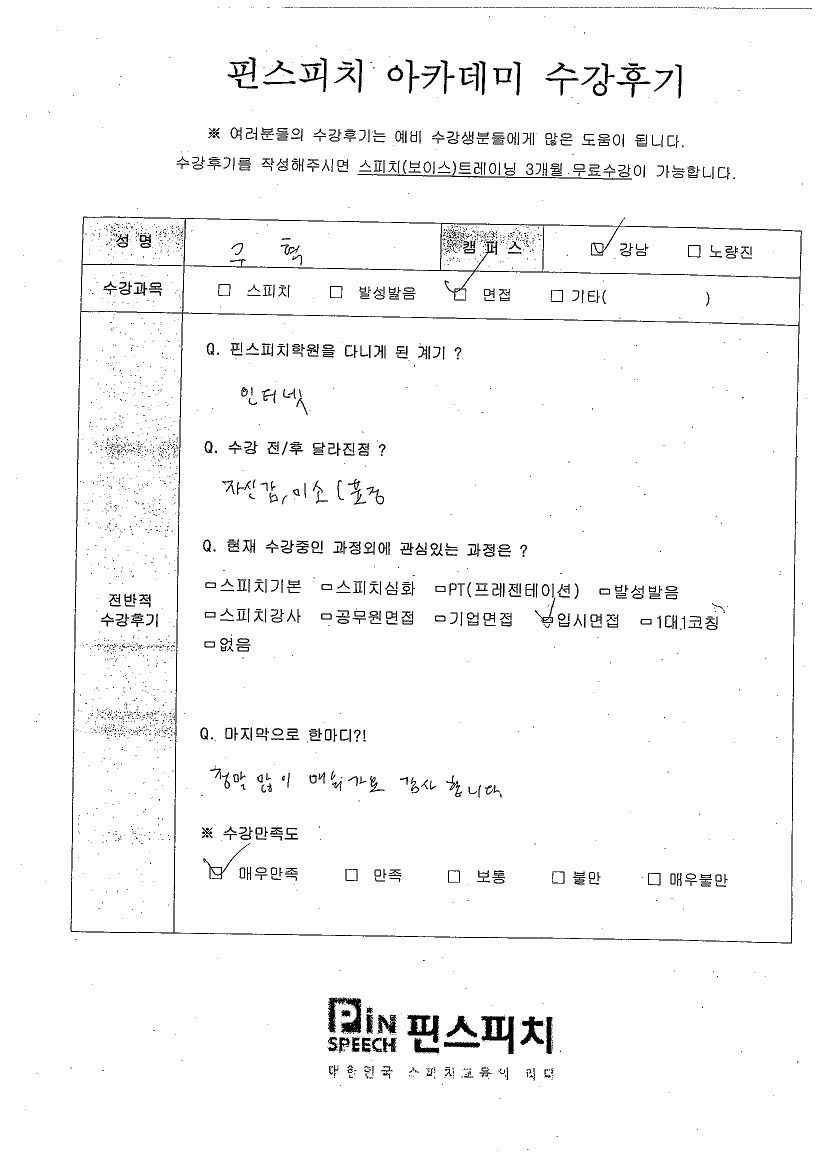 핀스피치 아카데미 수강후기
※ 여러분들의 수강후기는 예비 수강생분들에게 많은 도움이 됩니다.
수강후기를 작성해주시면 스피치(보이스)트레이닝 3개월 무료수강이 가능합니다.
성 명 구 혁 캠 퍼 스 ☑ 강남 □ 노량진
수강과목 □ 스피치 □ 발성발음 ☑ 면접 □ 기타( )
Q. 핀스피치학원을 다니게 된 계기 ?
인터넷
Q. 수강 전/후 달라진점 ?
자신감, 미소 (표정
Q. 현재 수강중인 과정외에 관심있는 과정은 ?
□스피치기본 □스피치심화 □PT(프레젠테이션) □발성발음
전반적
수강후기
□스피치강사 □공무원면접 □기업면접 ☑입시면접 □1대1코칭
□없음
Q. 마지막으로 한마디?!
정말 많이 배워가요 감사 합니다.
※ 수강만족도
☑ 매우만족 □ 만족 □ 보통 □ 불만 □ 매우불만
PiN
SPEECH 핀스피치
대한민국 스피치교육의 리더